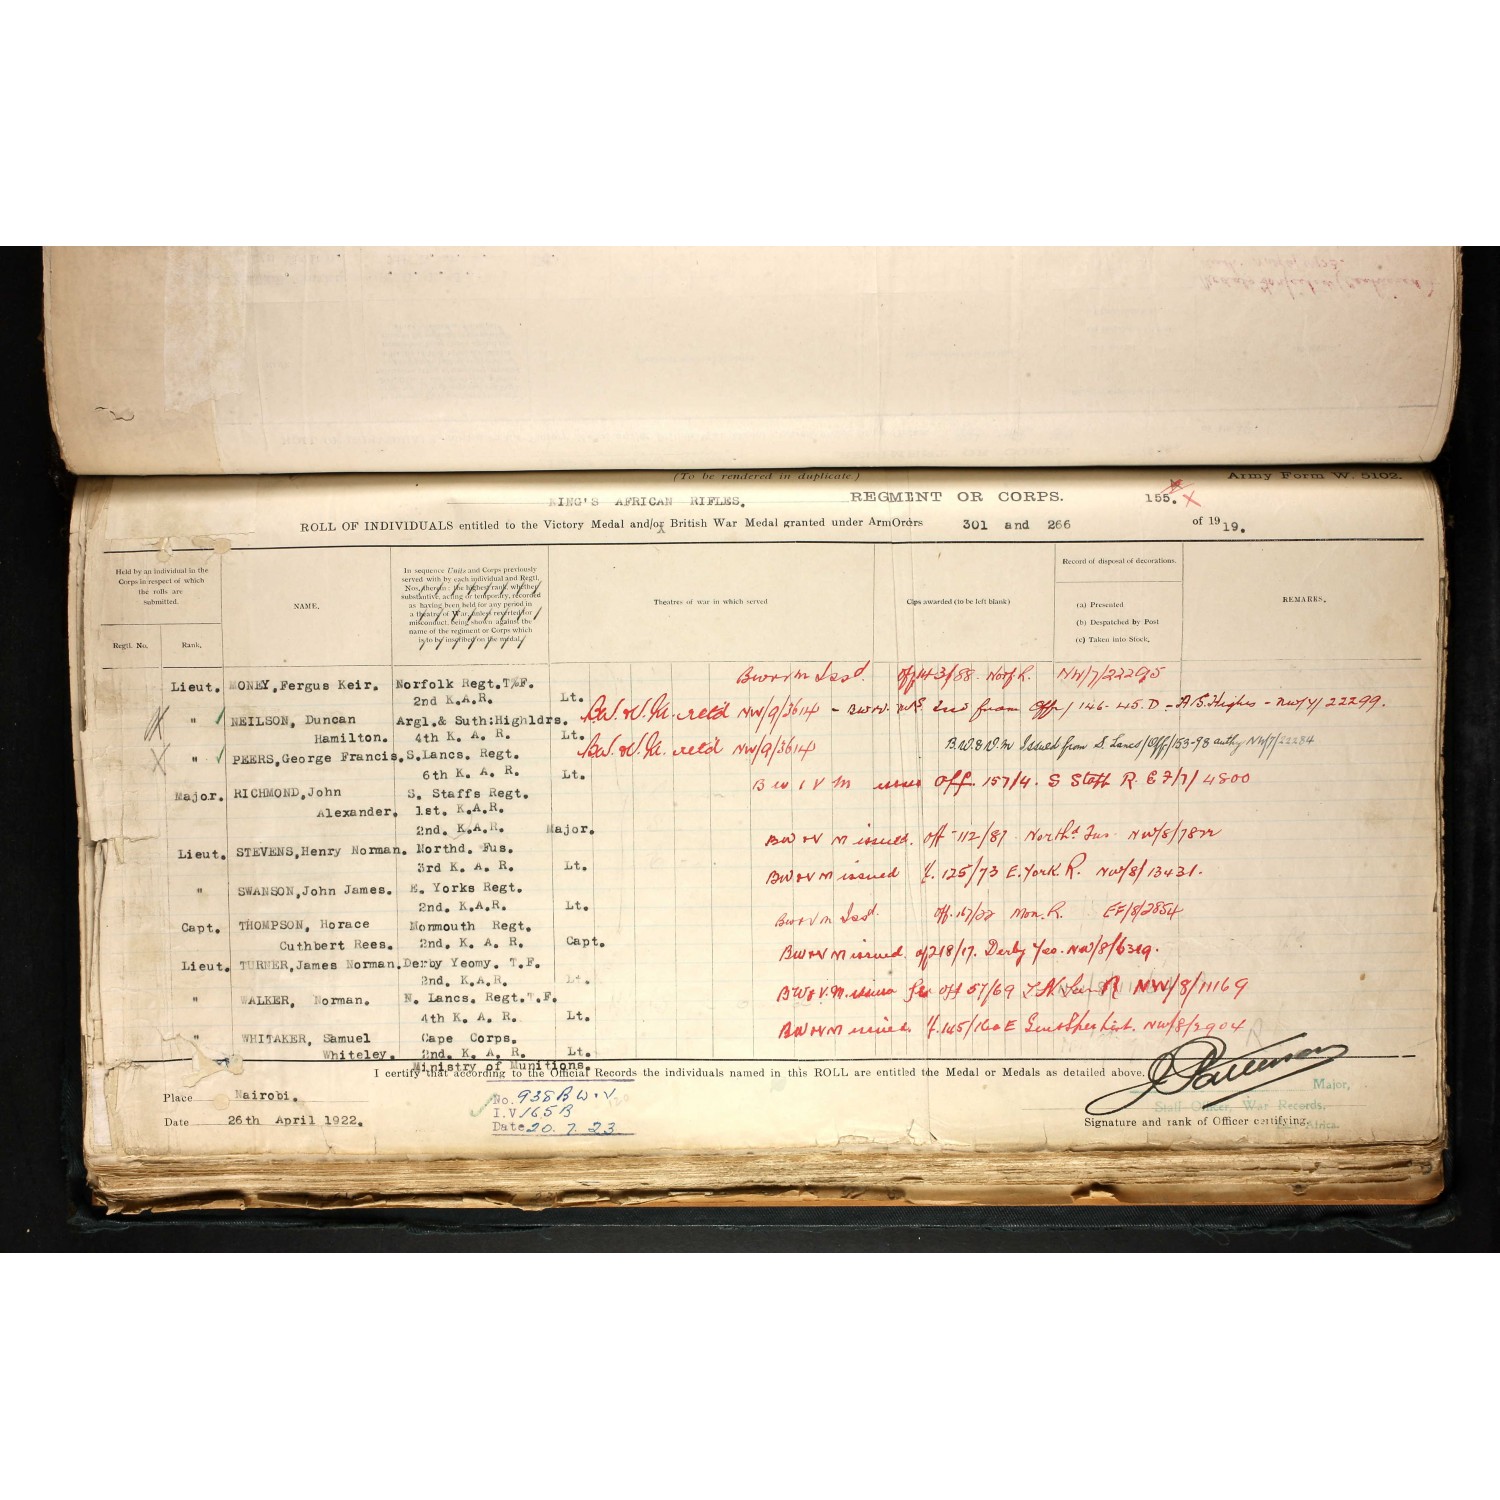 (To be rendered in duplicate)
Army Form W. 5102.
KING'S AFRICAN RIFLES. REGMENT OR CORPS. 155. X
ROLL OF INDIVIDUALS entitled to the Victory Medal and/or British War Medal granted under ArmOrders 301 and 266 of 1919.
Held by an individual in the
Corps in respect of which
the rolls are
submitted.
Regtl. No.
Rank.
NAME.
In sequence Units and Corps previously
served with by each individual and Regtl.
Nos. therein: the highest rank, whether
substantive, acting or temporary, recorded
as having been held for any period in
a theatre of War, unless reverted for
misconduct, being shown against the
name of the regiment or Corps which
is to be inscribed on the medal.
Theatres of war in which served
Clps awarded (to be left blank)
Record of disposal of decorations.
(a) Presented
(b) Despatched by Post
(c) Taken into Stock.
REMARKS.
Lieut. MONEY, Fergus Keir. Norfolk Regt.T.F. Off 143/88 Norf R. NW/7/22295
2nd K.A.R. Lt.
" NEILSON, Duncan Argl.& Suth:Highldrs. NW/9/3614 - from Off/146-45.D - A.&S.Highrs - NW/7/22299.
Hamilton. 4th K. A. R. Lt.
" PEERS,George Francis. S.Lancs. Regt. NW/9/3614 B.W.&V.M Issued from S. Lancs/Off/153-98 authy NW/7/22284
6th K. A. R. Lt.
Major. RICHMOND,John S. Staffs Regt. B W & V M issued Off. 157/4. S Staff R. EF/7/4800
Alexander. 1st. K.A.R.
2nd. K.A.R. Major.
Lieut. STEVENS,Henry Norman. Northd. Fus. BW & V M issued. Off 112/87 North'd Fus NW/8/7822
3rd K. A. R. Lt.
" SWANSON,John James. E. Yorks Regt. BW & V M issued 125/73 E. York. R. NW/8/13431.
2nd. K.A.R. Lt.
Capt. THOMPSON, Horace Monmouth Regt. BW & V M Issd. Off. 167/22 Mon. R. EF/8/2854
Cuthbert Rees. 2nd. K. A. R. Capt.
Lieut. TURNER,James Norman. Derby Yeomy. T.F. BW & V M issued. Off 218/17. Derby Yeo. NW/8/6319.
2nd. K.A.R. Lt.
" WALKER, Norman. N. Lancs. Regt.T.F. BW & V.M. issued Off 57/69 NW/8/11169
4th K. A. R. Lt.
" WHITAKER, Samuel Cape Corps. BW & V M issued. 145/160E Genl List. NW/8/2904
Whiteley. 2nd. K. A. R. Lt.
Ministry of Munitions.
I certify that according to the Official Records the individuals named in this ROLL are entitled the Medal or Medals as detailed above.
Place Nairobi.
Date 26th April 1922.
No. 938 B W.V
I.V 165 B
Date 20. 7. 23
Major,
Staff Officer, War Records.
Signature and rank of Officer certifying.
East Africa.